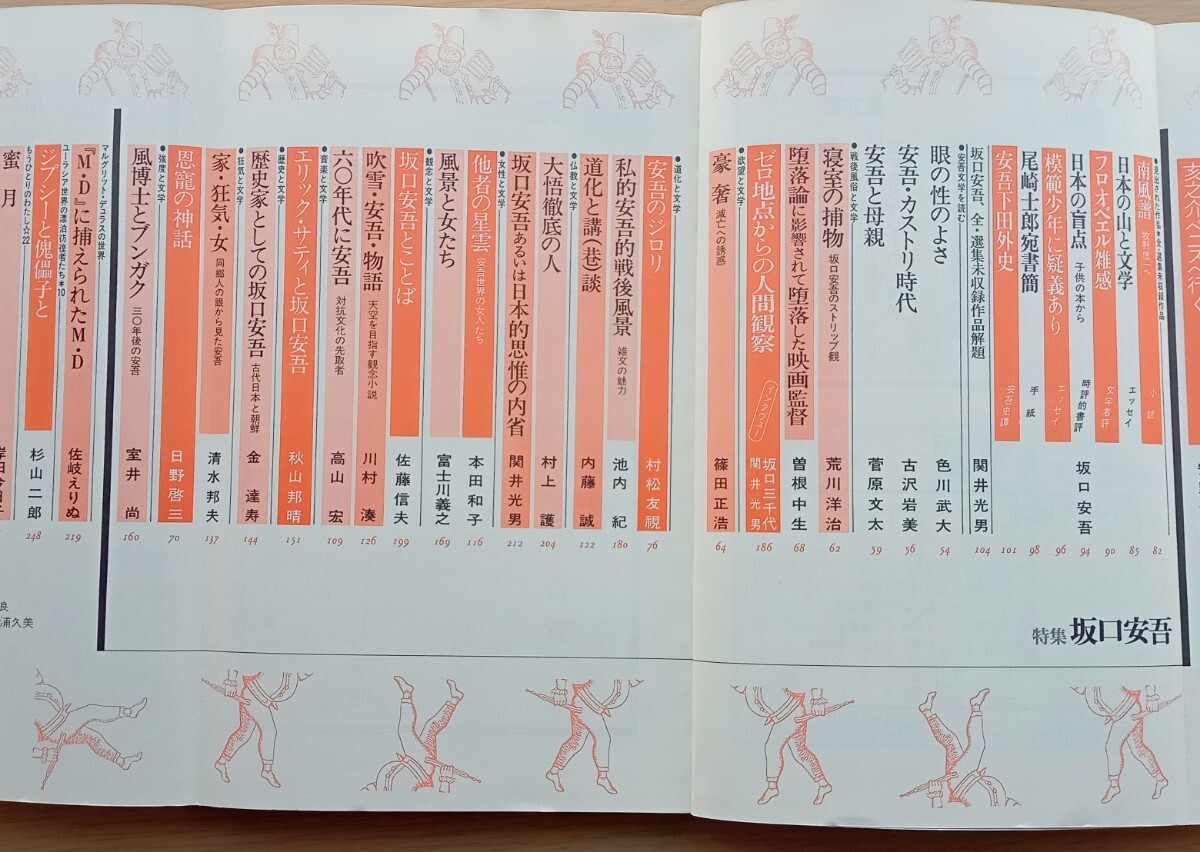 特集 坂口安吾
●見出された作品*全・選集未収録作品
南風譜 牧野信一へ 小説 82
日本の山と文学 エッセイ 85
フロオベエル雑感 文学者評 90
日本の盲点 子供の本から 時評的書評 坂口安吾 94
模範少年に疑義あり エッセイ 96
尾崎士郎宛書簡 手紙 98
安吾下田外史 安吾史譚 101
坂口安吾、全・選集未収録作品解題 関井光男 104
●安吾文学を読む
眼の性のよさ 色川武大 54
安吾・カストリ時代 古沢岩美 56
安吾と母親 菅原文太 59
●戦後風俗と文学
寝室の捕物 坂口安吾のストリップ観 荒川洋治 62
堕落論に影響されて堕落した映画監督 曽根中生 68
ゼロ地点からの人間観察 インタヴュー 坂口三千代 関井光男 186
●欲望と文学
豪奢 滅亡への誘惑 篠田正浩 64
●道化と文学
安吾のジロリ 村松友視 76
私的安吾的戦後風景 雑文の魅力 池内紀 180
道化と講(巷)談 内藤誠 122
●仏教と文学
大悟徹底の人 村上護 204
坂口安吾あるいは日本的思惟の内省 関井光男 212
●女性と文学
他者の星雲 安吾世界の女人たち 本田和子 116
風景と女たち 富士川義之 169
●観念と文学
坂口安吾とことば 佐藤信夫 199
吹雪・安吾・物語 天空を目指す観念小説 川村湊 126
六〇年代に安吾 対抗文化の先取者 高山宏 109
●音楽と文学
エリック・サティと坂口安吾 秋山邦晴 151
●歴史と文学
歴史家としての坂口安吾 古代日本と朝鮮 金達寿 144
●狂気と文学
家・狂気・女 同郷人の眼から見た安吾 清水邦夫 137
恩寵の神話 日野啓三 70
●強度と文学
風博士とブンガク 三〇年後の安吾 室井尚 160
マルグリット・デュラスの世界
『M・D』に捕えられたM・D 佐岐えりぬ 219
ユーラシア世界の漂泊彷徨者たち*10
ジプシーと傀儡子と 杉山二郎 248
もうひとりのわたし☆22
蜜月 岸田今日子
良
浦久美